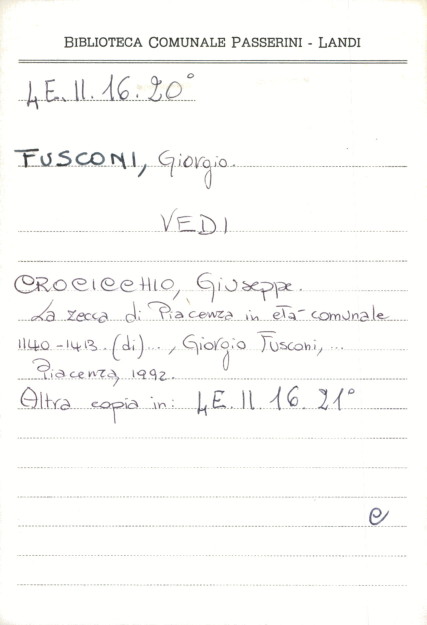 BIBLIOTECA COMUNALE PASSERINI - LANDI
4E.II.16.20°
FUSCONI, Giorgio.
VEDI
CROCICCHIO, Giuseppe.
La zecca di Piacenza in età comunale
1140-1413. (di)..., Giorgio Fusconi,...
Piacenza, 1992.
Altra copia in: 4E.II.16.21°
e